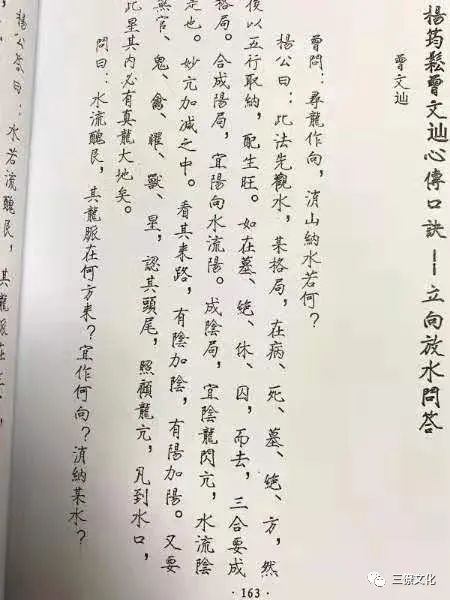 楊筠鬆曾文辿心傳口訣——立向放水問答
曾文辿
曾問：尋龍作向，消山納水若何？
楊公曰：此法先觀水，某格局，在病、死、墓、絶、方，然
後以五行取納，配生旺。如在墓、絶、休、囚，而去，三合要成
格局。合成陽局，宜陽向水流陽。成陰局，宜陰龍閃亢，水流陰
是也。妙亢加減之中。看其來路，有陰加陰，有陽加陽。又要
無官、鬼、禽、曜、獸、星，認其頭尾，照顧龍亢，凡到水口，
此星其内必有真龍大地矣。
問曰：水流醜艮，其龍脈在何方來？宜作何向？消納某水？
楊公答曰：水若流醜艮，其龍脈在
·163·
三僚文化